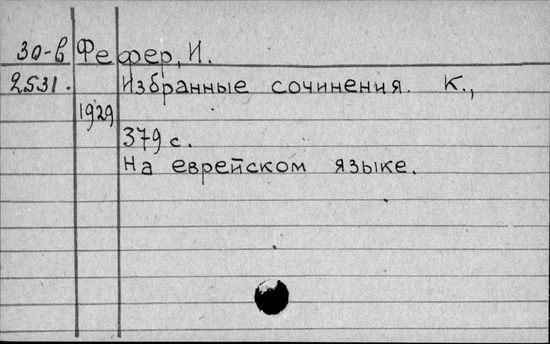 30-в Фефер, И.
2531. Избранные сочинения. К.,
1929
379 с.
На еврейском языке.